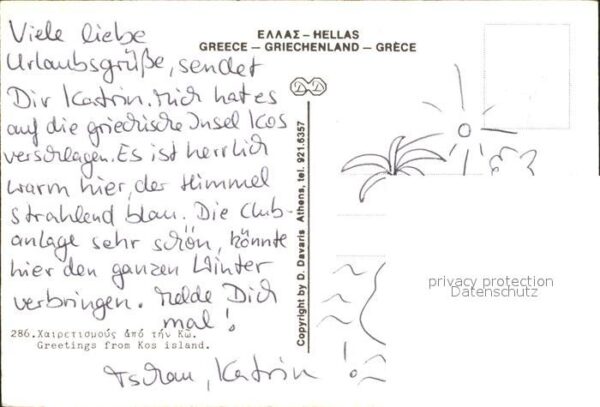 ΕΛΛΑΣ – HELLAS
GREECE – GRIECHENLAND – GRÈCE
Viele liebe
Urlaubsgrüße, sendet
Dir Katrin. Mich hat es
auf die griechische Insel Kos
verschlagen. Es ist herrlich
warm hier, der Himmel
strahlend blau. Die Club-
anlage sehr schön, könnte
hier den ganzen Winter
verbringen. Melde Dich
mal!
286. Χαιρετισμούς ἀπό τήν Κῶ.
Greetings from Kos island.
Tschau, Katrin
Copyright by D. Davaris Athens, tel. 921.6357
privacy protection
Datenschutz